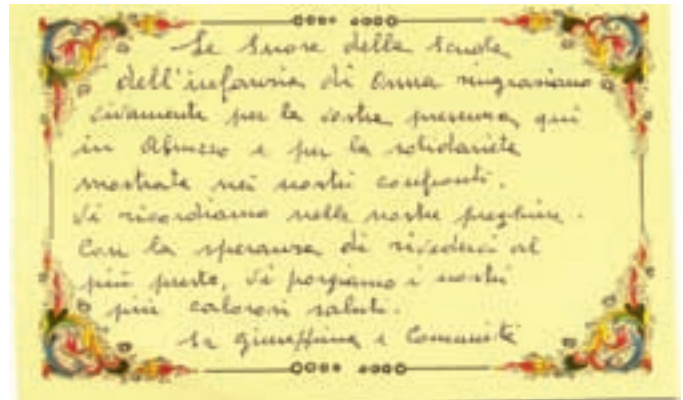 Le Suore della Scuola
dell'infanzia di Onna ringraziano
vivamente per la vostra presenza, qui
in Abruzzo e per la solidarietà
mostrata nei nostri confronti.
Vi ricordiamo nelle nostre preghiere.
Con la speranza di rivederci al
più presto, Vi porgiamo i nostri
più calorosi saluti.
Sr Giuseppina e Comunità